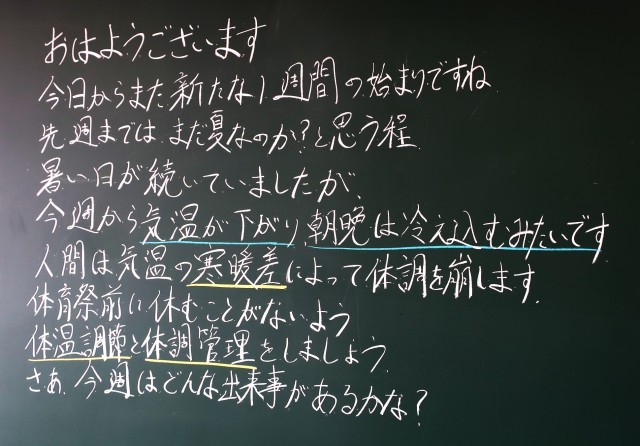 おはようございます
今日からまた新たな1週間の始まりですね
先週までは、まだ夏なのか?と思う程
暑い日が続いていましたが、
今週から気温が下がり、朝晩は冷え込むみたいです
人間は気温の寒暖差によって体調を崩します。
体育祭前に休むことがないよう
体温調節と体調管理をしましょう。
さあ、今週はどんな出来事があるかな?